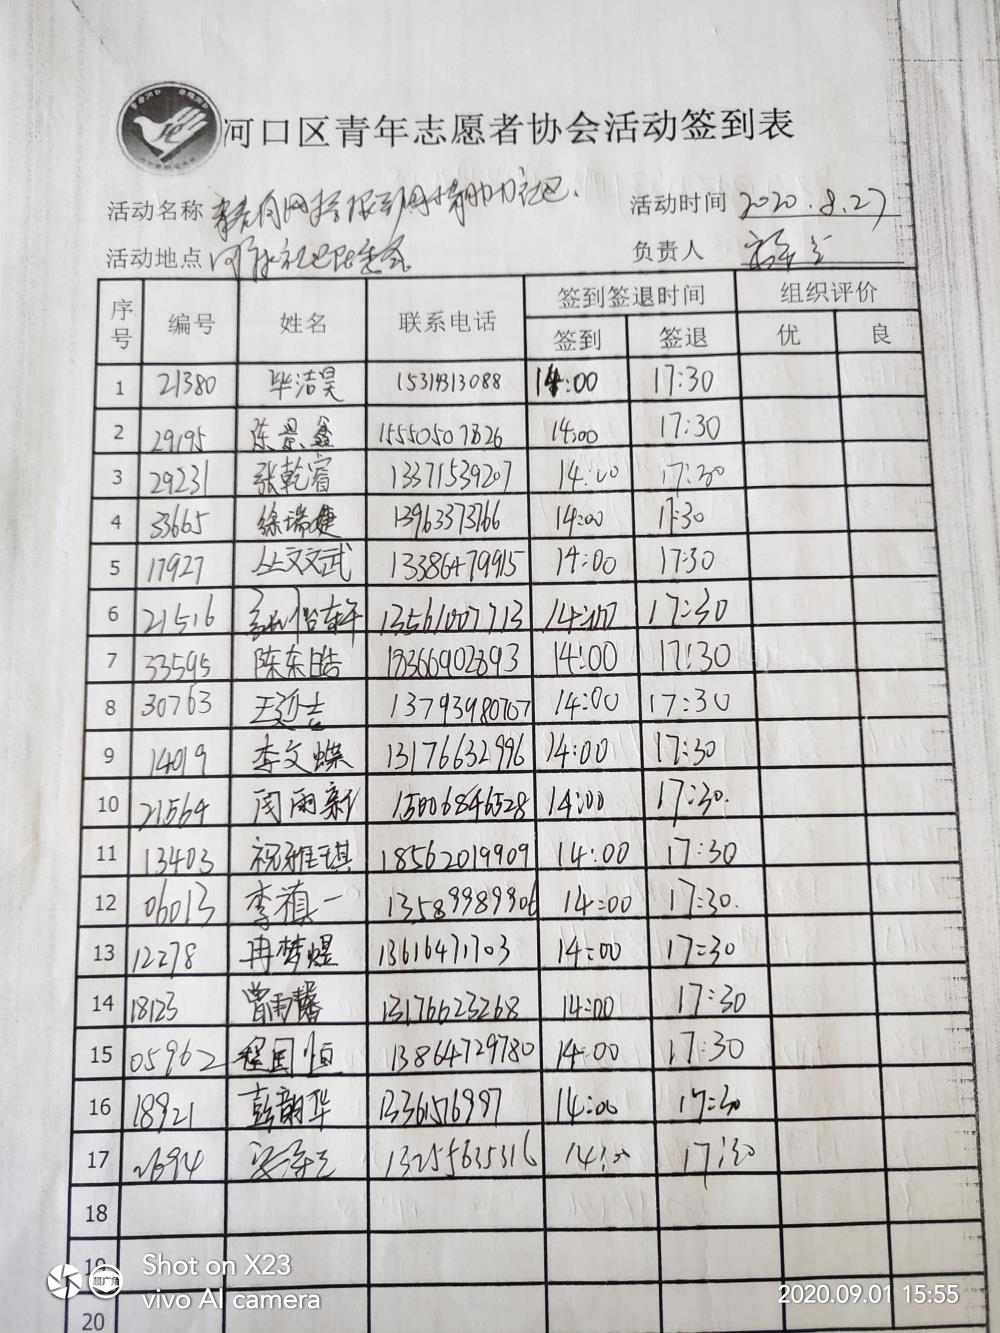 河口区青年志愿者协会活动签到表
活动名称 活动时间 2020.8.27
活动地点 负责人
序号 编号 姓名 联系电话 签到签退时间 组织评价
签到 签退 优 良
1 21380 毕洁昊 15314313088 14:00 17:30
2 29195 陈景鑫 15550507826 14:00 17:30
3 29231 张乾睿 13371539207 14:00 17:30
4 33665 徐瑞婕 13963373766 14:00 17:30
5 17927 丛文武 13386479915 14:00 17:30
6 21516 13561007713 14:00 17:30
7 33595 陈东皓 18366902893 14:00 17:30
8 30763 王迎吉 13793980707 14:00 17:30
9 14019 李文蝶 13176632996 14:00 17:30
10 21564 闵雨新 15006846528 14:00 17:30.
11 13403 祝雅琪 18562019909 14:00 17:30
12 06013 李禛一 13589989906 14:00 17:30.
13 12278 冉梦煜 13616471703 14:00 17:30
14 18123 曾雨馨 13176623268 14:00 17:30
15 05962 程国恒 13864729780 14:00 17:30
16 18921 彭韵华 13361576997 14:00 17:30
17 13255635316 14:00 17:30
18
19
20
Shot on X23
vivo AI camera
超广角
2020.09.01 15:55